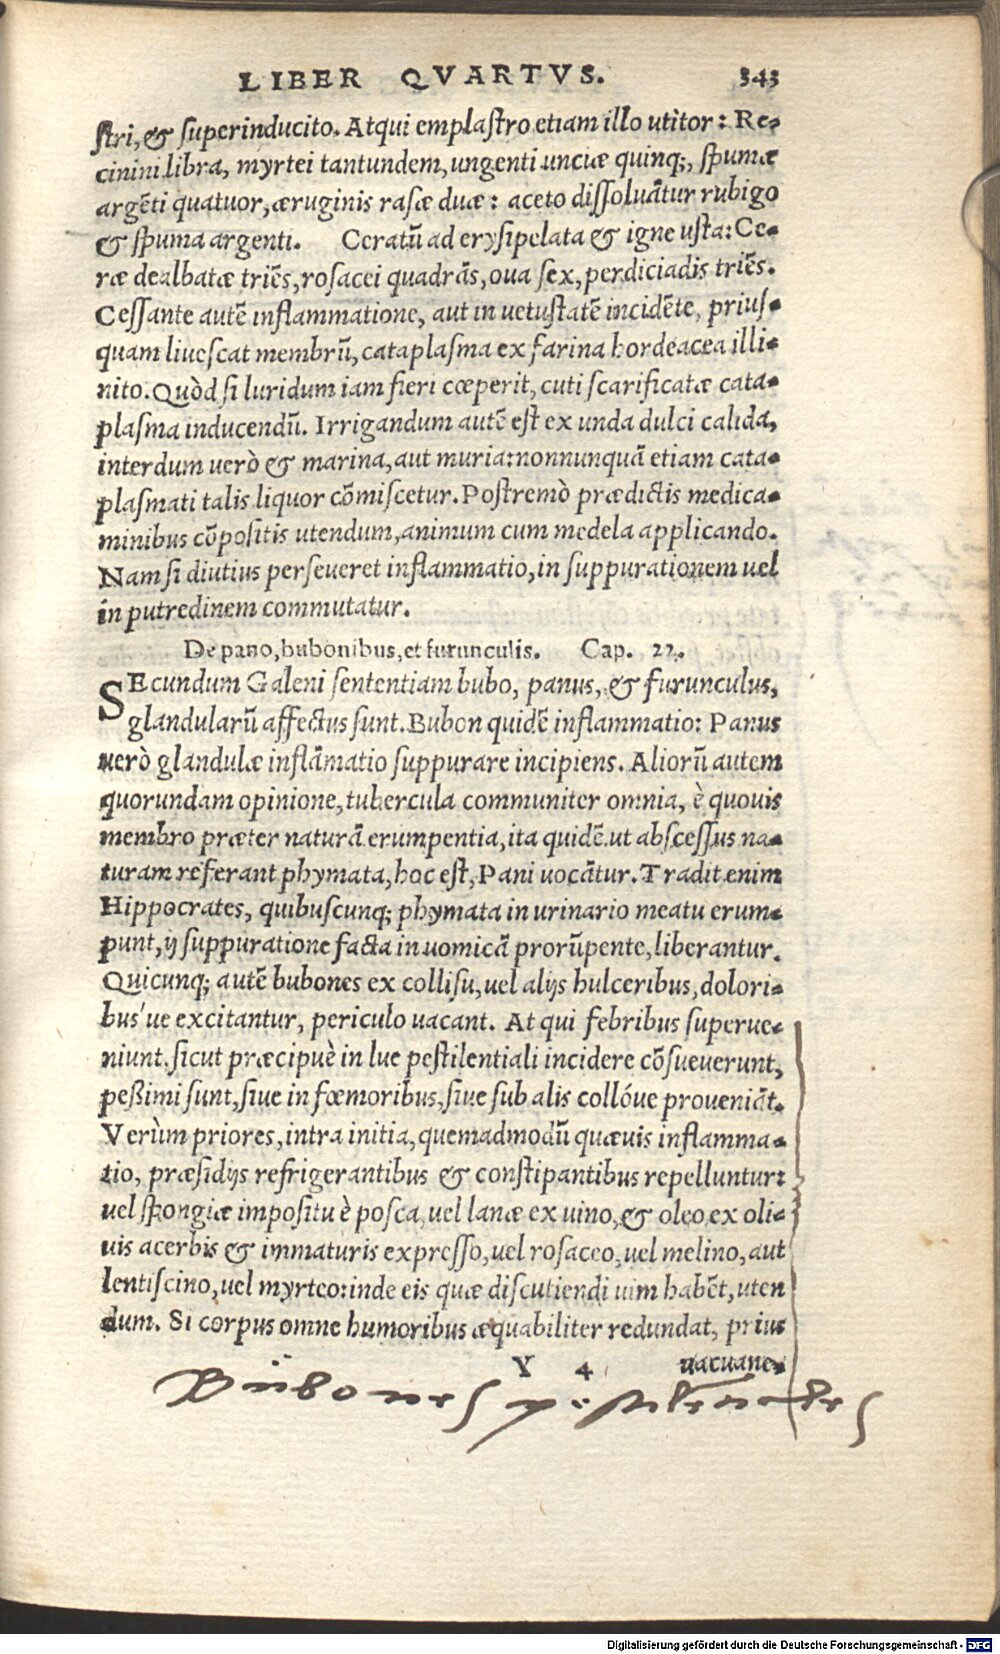 LIBER QVARTVS. 343
stri, & superinducito. Atqui emplastro etiam illo utitor: Re-
cinini libra, myrtei tantundem, ungenti unciæ quinq;, spumæ
argẽti quatuor, æruginis rasæ duæ: aceto dissoluãtur rubigo
& spuma argenti. Ceratũ ad erysipelata & igne usta: Ce-
ræ dealbatæ triẽs, rosacei quadrãs, oua sex, perdiciadis triẽs.
Cessante autẽ inflammatione, aut in uetustatẽ incidẽte, prius-
quam liuescat membrũ, cataplasma ex farina hordeacea illi-
nito. Quòd si luridum iam fieri cœperit, cuti scarificatæ cata-
plasma inducendũ. Irrigandum autẽ est ex unda dulci calida,
interdum uerò & marina, aut muria: nonnunquã etiam cata-
plasmati talis liquor cõmiscetur. Postremò prædictis medica-
minibus cõpositis utendum, animum cum medela applicando.
Nam si diutius perseueret inflammatio, in suppurationem uel
in putredinem commutatur.
De pano, bubonibus, et furunculis. Cap. 22.
SEcundum Galeni sententiam bubo, panus, & furunculus,
glandularũ affectus sunt. Bubon quidẽ inflammatio: Panus
uerò glandulæ inflãmatio suppurare incipiens. Aliorũ autem
quorundam opinione, tubercula communiter omnia, è quouis
membro præter naturã erumpentia, ita quidẽ ut abscessus na-
turam referant phymata, hoc est, Pani uocãtur. Tradit enim
Hippocrates, quibuscunq; phymata in urinario meatu erum-
punt, ij suppuratione facta in uomicã prorũpente, liberantur.
Quicunq; autẽ bubones ex collisu, uel alijs hulceribus, dolori-
bus'ue excitantur, periculo uacant. At qui febribus superue-
niunt, sicut præcipuè in lue pestilentiali incidere cõsueuerunt,
peßimi sunt, siue in fœmoribus, siue sub alis collóue proueniãt.
Verùm priores, intra initia, quemadmodũ quæuis inflamma-
tio, præsidijs refrigerantibus & constipantibus repelluntur:
uel spongiæ impositu è posca, uel lanæ ex uino, & oleo ex oli-
uis acerbis & immaturis expresso, uel rosaceo, uel melino, aut
lentiscino, uel myrteo: inde eis quæ discutiendi uim habẽt, uten
dum. Si corpus omne humoribus æquabiliter redundat, prius
Y 4 uacuane-
Bübones
Digitalisierung gefördert durch die Deutsche Forschungsgemeinschaft - DFG